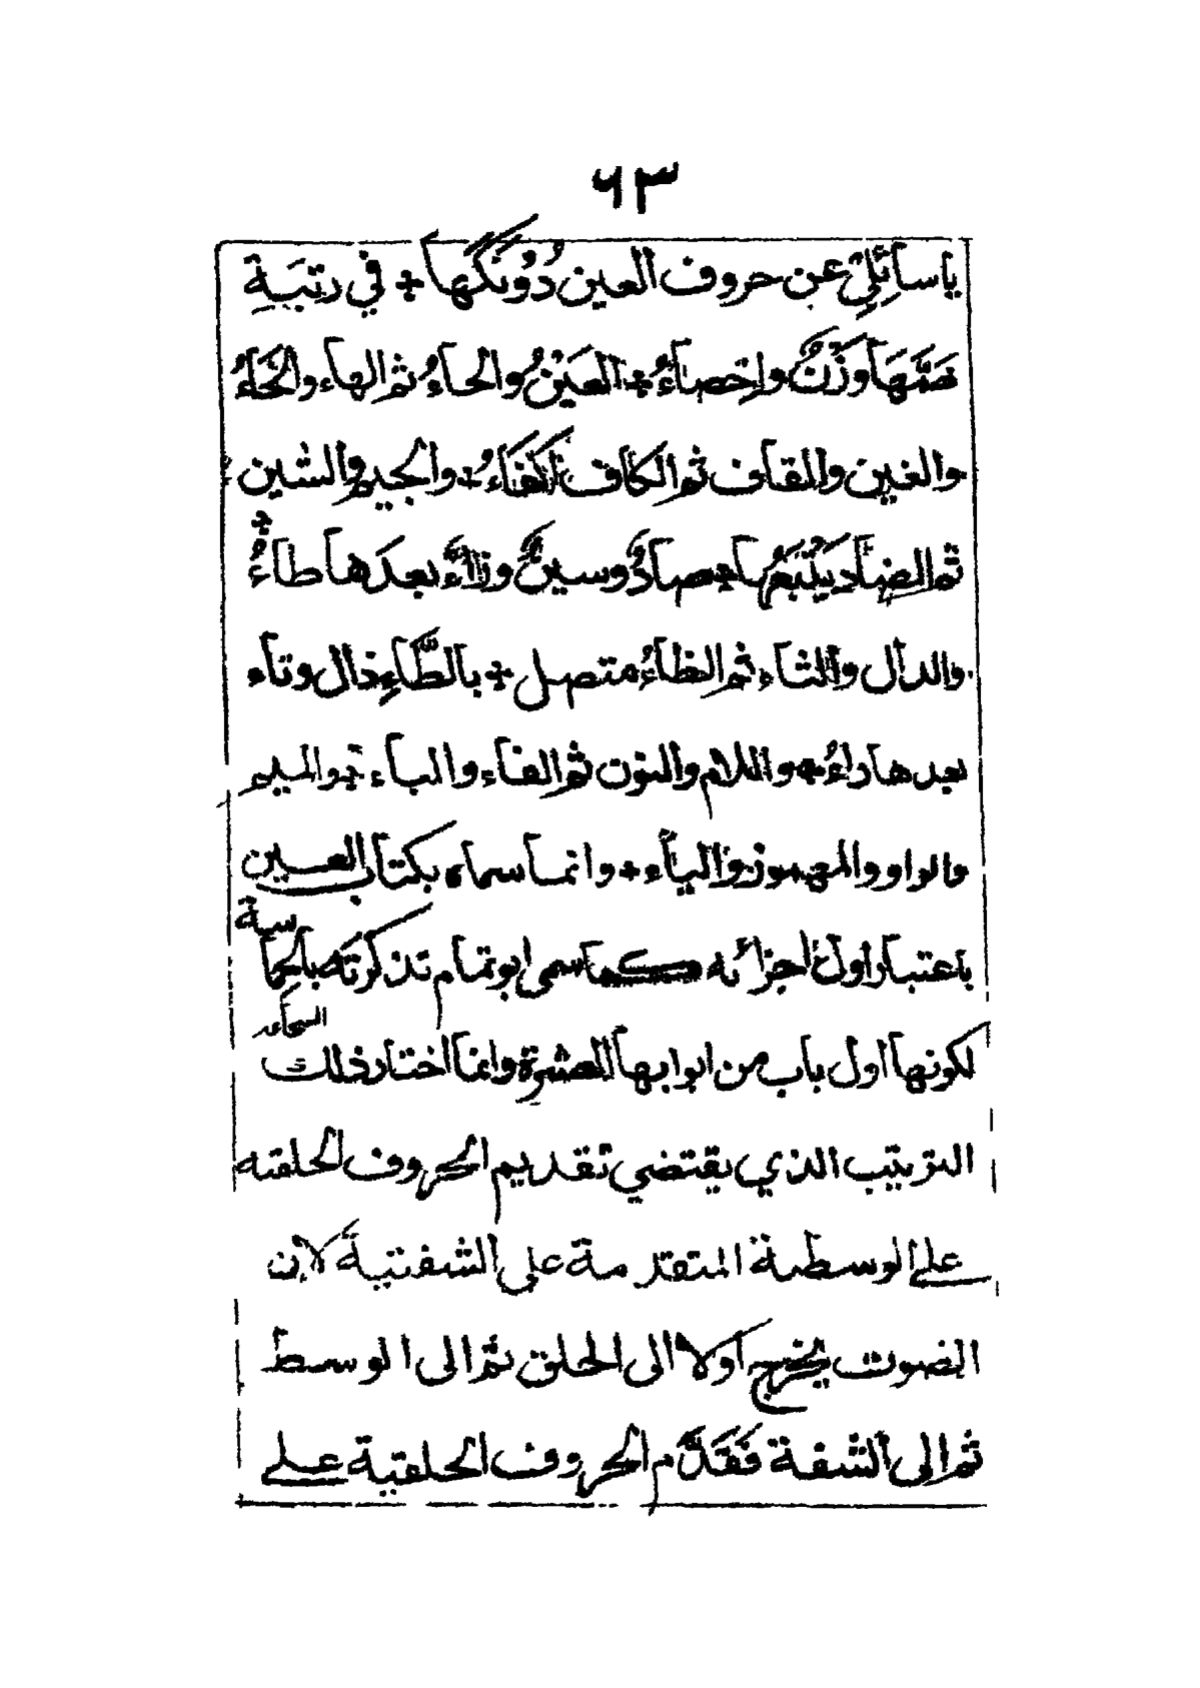 ٦٣
يا سائِلِي عن حروف العين دُونَكَها ⁘ في رتبَةٍ
ضَمَّهَا وَزْنٌ وإحصاءُ ⁘ العَيْنُ والحاءُ ثم الهاء والخاءُ
والغين والقاف ثم الكاف أكفاءُ ⁘ والجيم والشين
ثم الضاد يَتْبَعُها ⁘ صادٌ وسينٌ وزاءٌ بعدَها طاءُ ⁘
والدال والتاء ثم الظاءُ متصل ⁘ بالظَّاءِ ذال وثاء
بعدها راءُ ⁘ واللام والنون ثم الفاء والباء ⁘ والميم
والواو والمهموز والياء ⁘ وانما سماه بكتاب العين
باعتبار اول اجزائه كما سمى ابو تمام تذكرته بالحماسة
لكونها اول باب من ابوابها العشرة وانما اختار ذلك
الترتيب الذي يقتضي تقديم الحروف الحلقيه
على الوسطية المتقدمة على الشفتية لان
الصوت يخرج اولا الى الحلق ثم الى الوسط
ثم الى الشفة فَقَدَّم الحروف الحلقية على